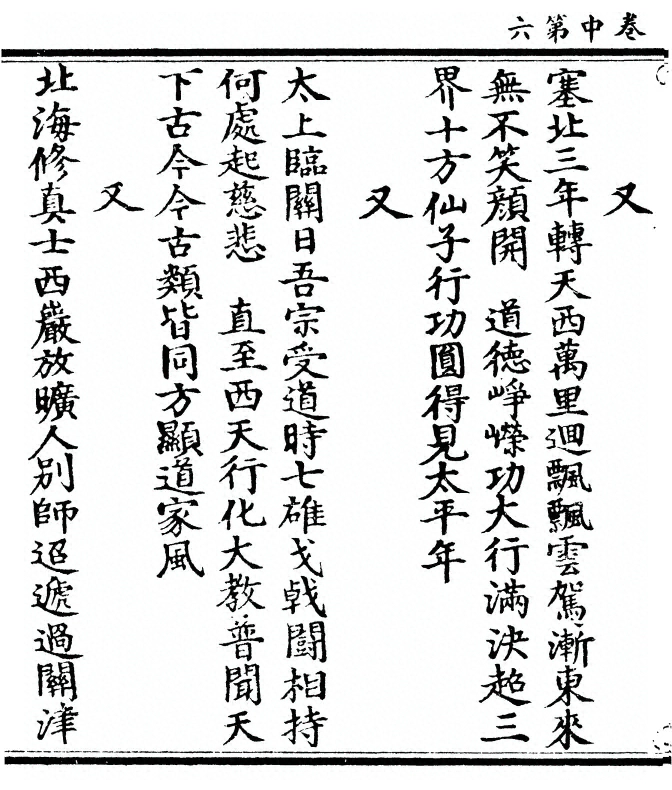 卷中第六
又
塞北三年轉天西萬里迴飄飄雲駕漸東來
無不笑顔開　道德崢嶸功大行滿決超三
界十方仙子行功圓得見太平年
又
太上臨關日吾宗受道時七雄戈戟鬭相持
何處起慈悲　直至西天行化大教普聞天
下古今今古類皆同方顯道家風
又
北海修真士西巖放曠人別師迢遞過關津